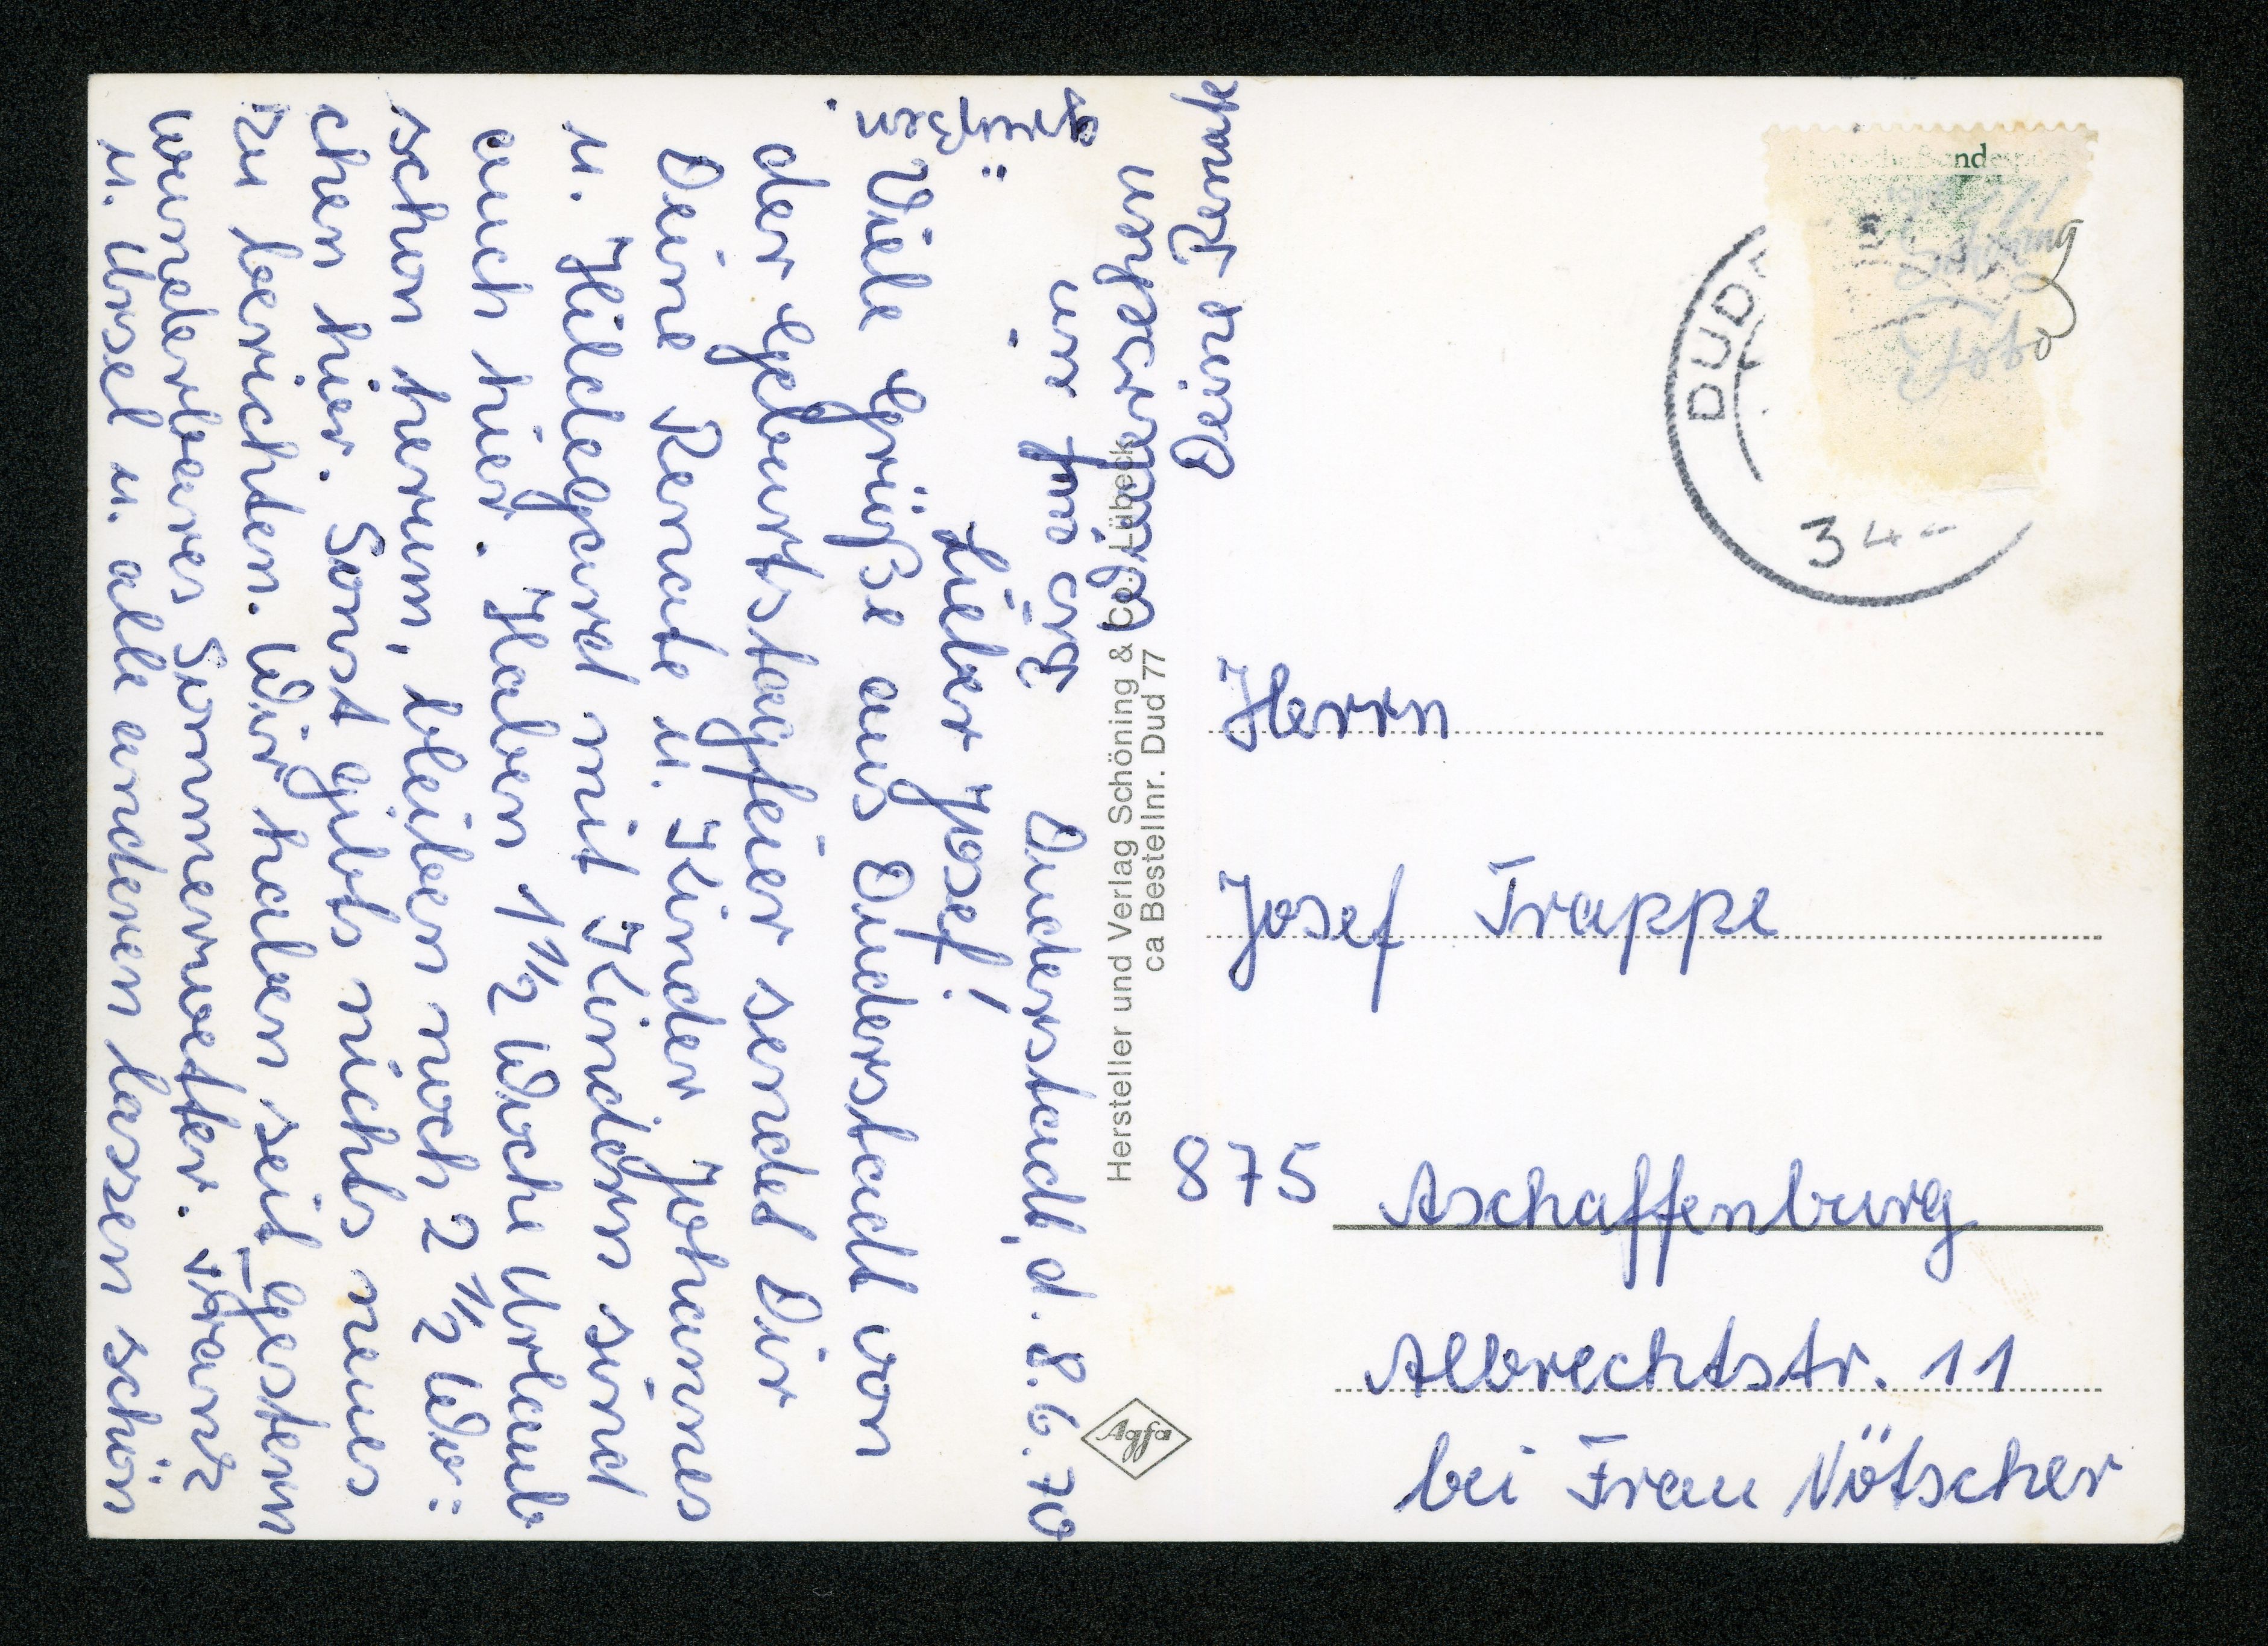 Duderstadt, d. 8.6.70
Lieber Josef!
Viele Grüße aus Duderstadt von
der Geburtstagfeier sendet Dir
Deine Renate u. Kinder Johannes
u. Hildegard mit Kindern sind
auch hier. Haben 1 1/2 Woche Urlaub
schon herum, bleiben noch 2 1/2 Wo-
chen hier. Sonst gibts nichts neues
zu berichten. Wir haben seit gestern
wunderbares Sommerwetter. Franz
u. Ursel u. alle anderen lassen schön
grüßen.
Bis auf ein
Wiedersehen
Deine Renate
Hersteller und Verlag Schöning & Co., Lübeck
ca Bestellnr. Dud 77
Agfa
Deutsche Bundespost
DUD
34
Herrn
Josef Trappe
875 Aschaffenburg
Albrechtstr. 11
bei Frau Nötscher